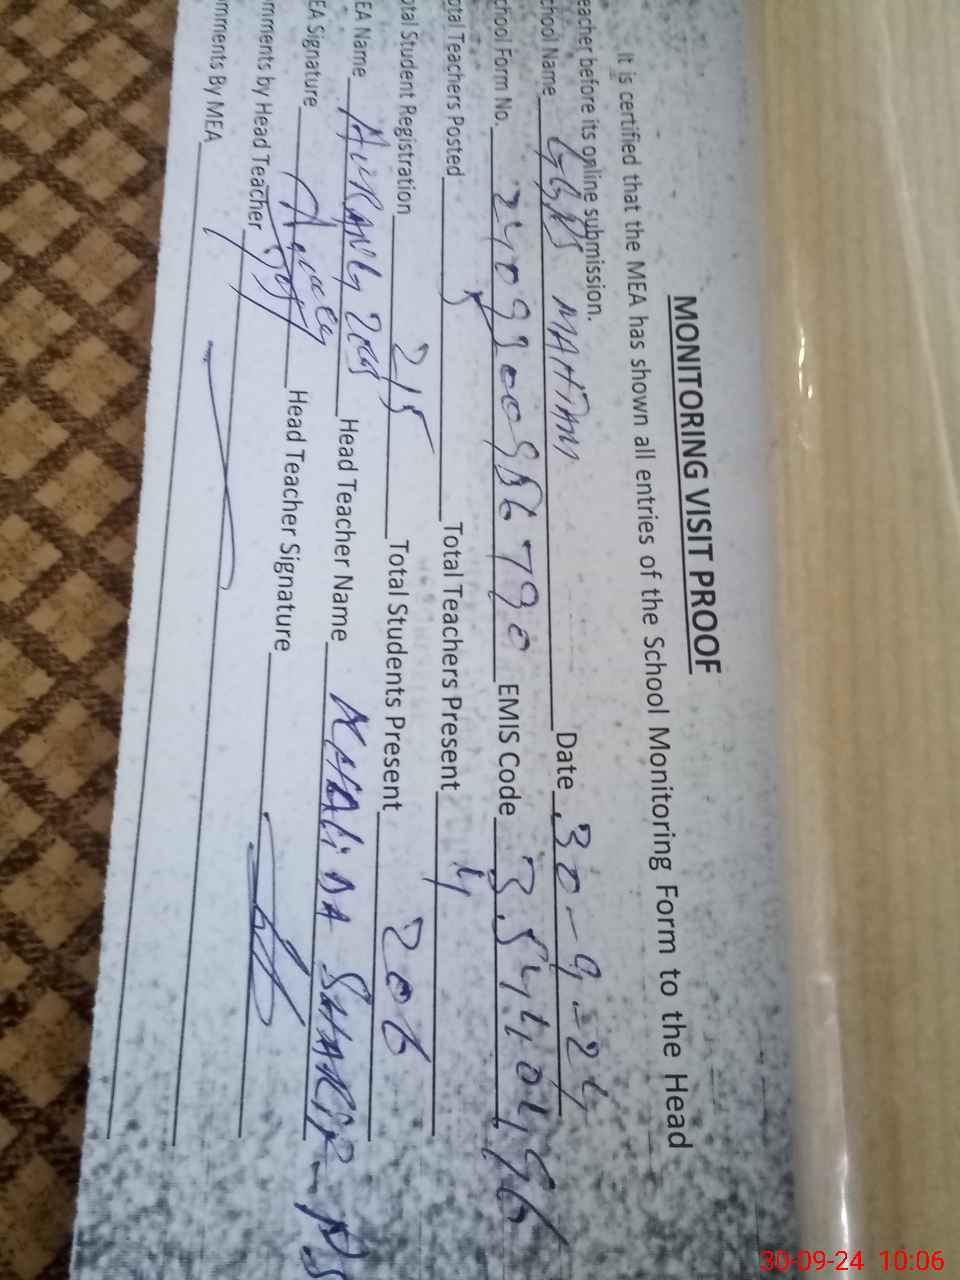 MONITORING VISIT PROOF
It is certified that the MEA has shown all entries of the School Monitoring Form to the Head
eacher before its online submission.
chool Name GGPS Date 30-9-24
chool Form No. EMIS Code
otal Teachers Posted 5 Total Teachers Present 4
otal Student Registration 215 Total Students Present 206
EA Name Head Teacher Name KHALIDA
EA Signature Head Teacher Signature
mments by Head Teacher
omments By MEA
30-09-24 10:06